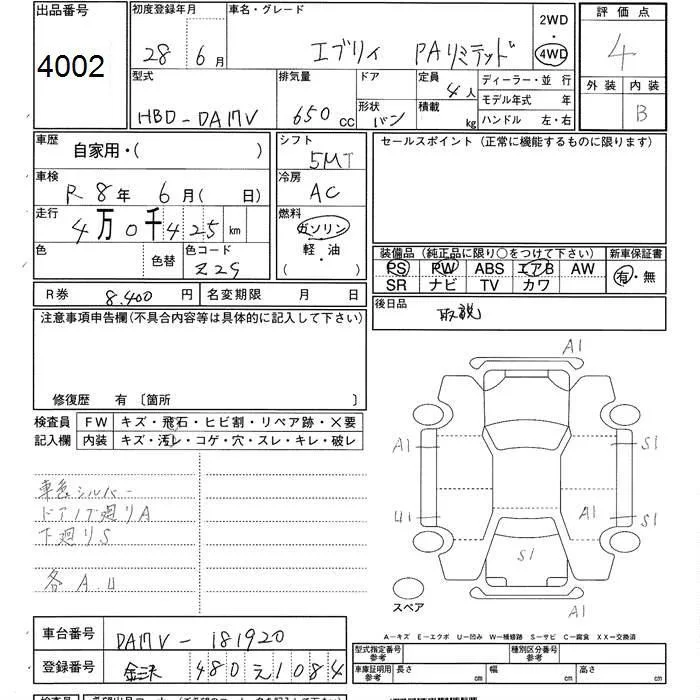 出品番号
4002
初度登録年月
28年6月
車名・グレード
エブリィ PAリミテッド
2WD
4WD
評価点
4
外装 内装
B
型式
HBD-DA17V
排気量
650cc
ドア
形状
バン
定員
4人
積載
kg
ディーラー・並 行
モデル年式 年
ハンドル 左・右
車歴
自家用・( )
車検
R8年6月( 日)
走行
4万0千425km
色
色替
色コード
Z2S
シフト
5MT
冷房
AC
燃料
ガソリン
軽・油
( ・ )
セールスポイント(正常に機能するものに限ります)
装備品(純正品に限り○をつけて下さい)
PS PW ABS エアB AW
SR ナビ TV カワ
新車保証書
有・無
R券 8,400円
名変期限 月 日
後日品
取説
注意事項申告欄(不具合内容等は具体的に記入して下さい)
修復歴 有 〔箇所 〕
検査員
記入欄
FW キズ・飛石・ヒビ割・リペア跡・×要
内装 キズ・汚レ・コゲ・穴・スレ・キレ・破レ
シルバー
ドア ノブ廻りA
下廻りS
各A.U
A1
A1
S1
U1
A1
S1
S1
A1
スペア
A-キズ E-エクボ U-凹み W-補修跡 S-サビ C-腐食 XX-交換済
車台番号
DA17V-181920
登録番号
金沢 480え1084
型式指定番号
参考
種別区分番号
参考
車庫証明用
参考
長さ cm
幅 cm
高さ cm